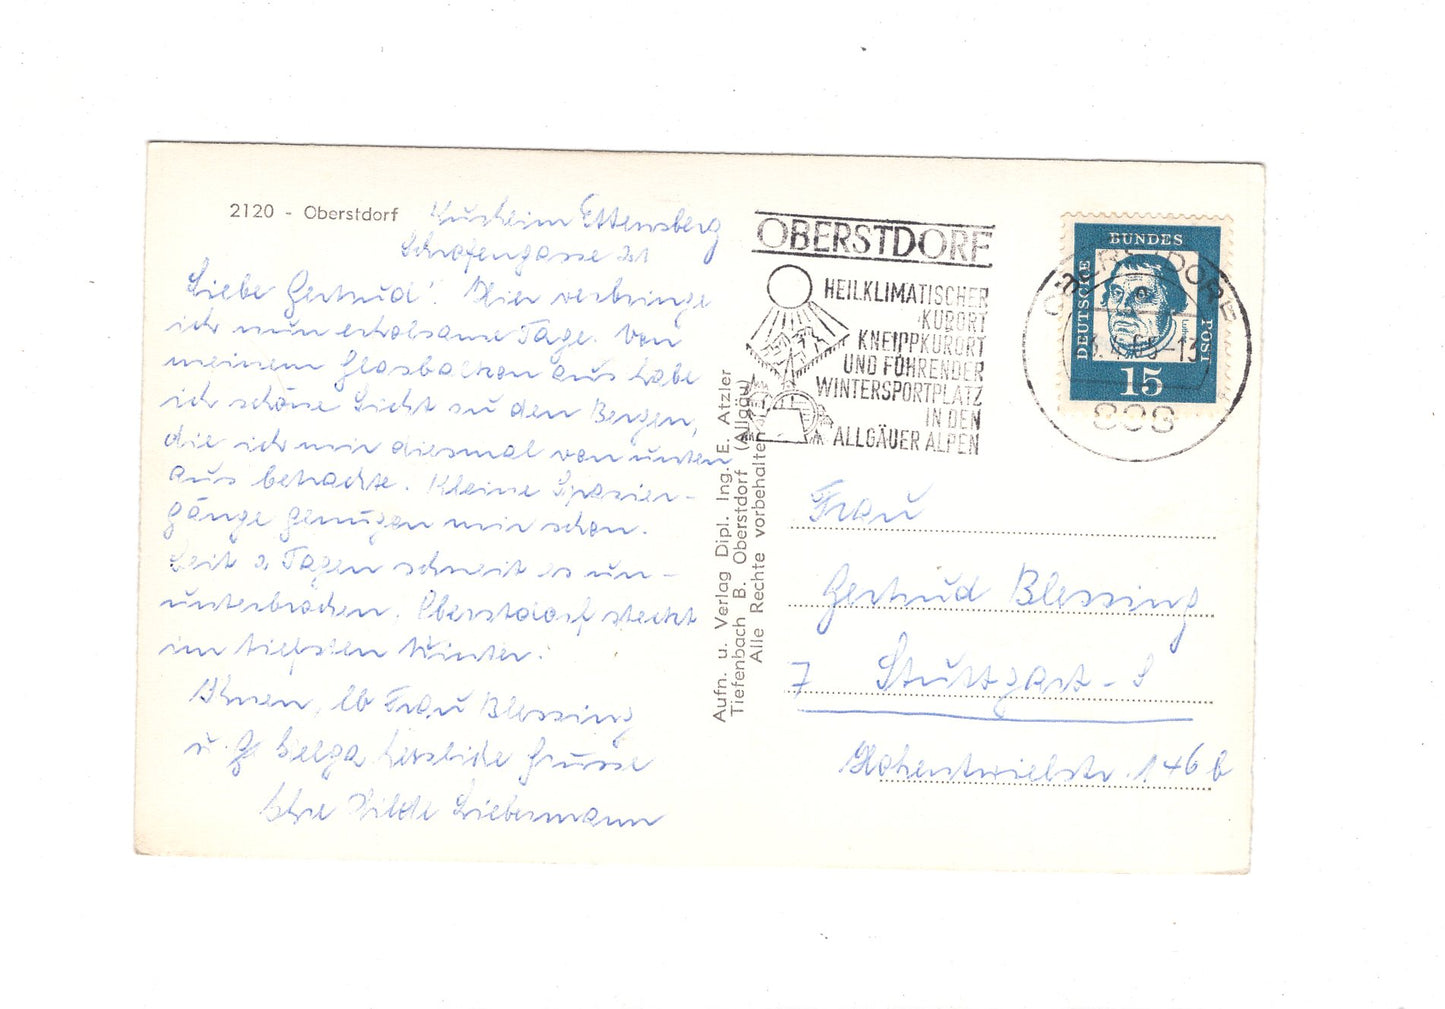 2120 - Oberstdorf
Kurheim Ettensberg
Schrofengasse 21
Liebe Gertrud! Hier verbringe
ich nun erholsame Tage. Von
meinem Glasbalkon aus habe
ich schöne Sicht zu den Bergen,
die ich mir diesmal von unten
aus betrachte. Kleine Spazier-
gänge genügen mir schon.
Seit 2 Tagen schneit es un-
unterbrochen. Oberstdorf steckt
im tiefsten Winter.
Ihnen, lb Frau Blessing
u. Helga herzliche Grüsse
Ihre Hilde Liebermann
Aufn. u. Verlag Dipl. Ing. E. Atzler
Tiefenbach B. Oberstdorf (Allgäu)
Alle Rechte vorbehalten
OBERSTDORF
HEILKLIMATISCHER
KURORT
KNEIPPKURORT
UND FÜHRENDER
WINTERSPORTPLATZ
IN DEN
ALLGÄUER ALPEN
DEUTSCHE
BUNDES
POST
15
OBERSTDORF
-13
898
Frau
Gertrud Blessing
7 Stuttgart-S
Hohentwielstr. 146 b